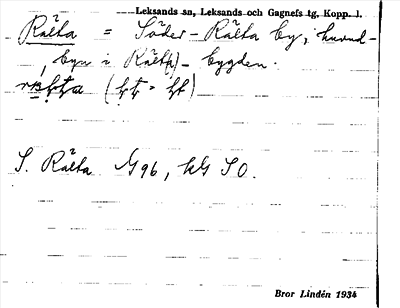 Leksands sn, Leksands och Gagnefs tg, Kopp. l.
Rälta = Söder-Rälta by, huvud-
byn i Rält(a)-bygden.
S. Rälta G96, kG SO.
Bror Lindén 1934